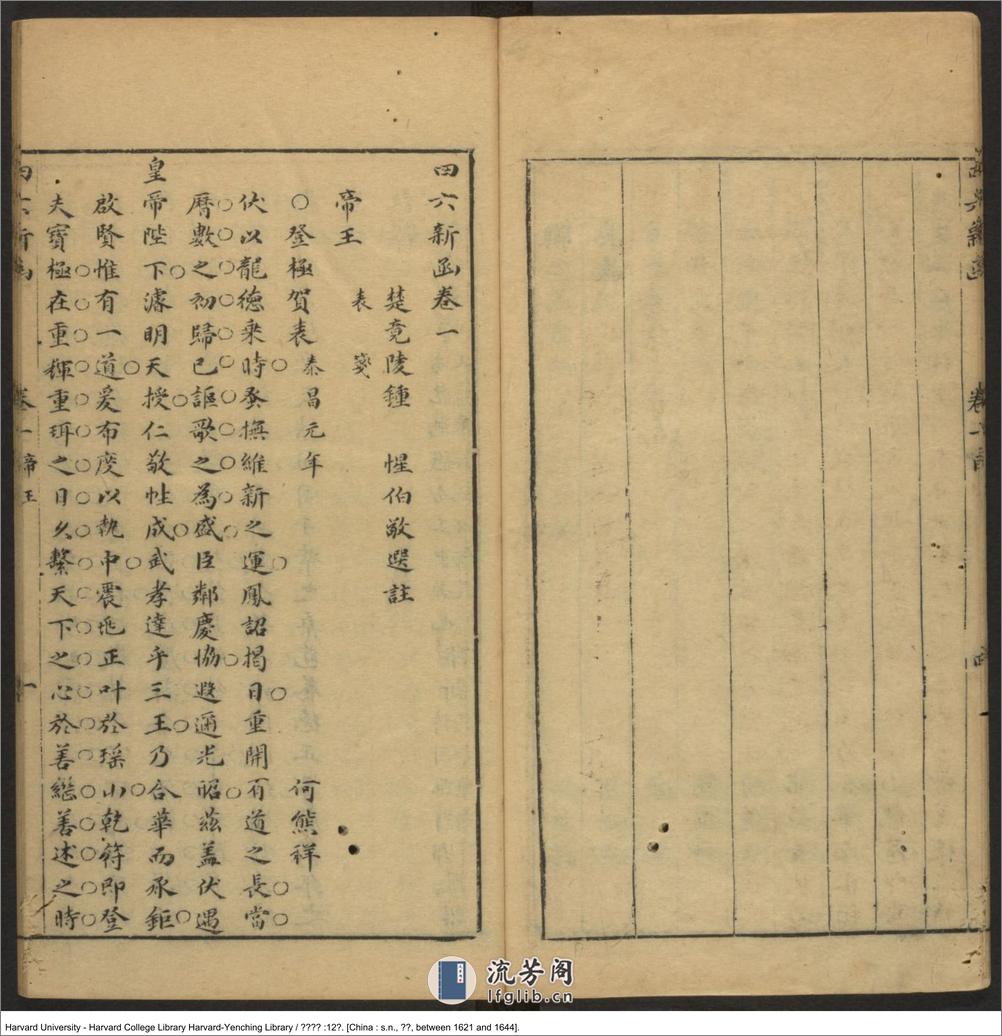 四六新函卷一
楚竟陵鍾　惺伯敬選註
表　箋
帝王
○登極賀表　泰昌元年　何熊祥
伏以龍德乘時蚤撫維新之運鳳詔揭日重開有道之長當
曆數之初歸已謳歌之為盛臣鄰慶協遐邇光昭茲蓋伏遇
皇
帝陛下濬明天授仁敬性成武孝達乎三王乃合華而承鉅
啟賢惟有一道爰布度以執中震邸正叶於瑤山乾符即登
夫寶極在重輝重珥之日久繫天下之心於善繼善述之時
卷一 帝王
一
流芳阁
lfglib.cn
Harvard University - Harvard College Library Harvard-Yenching Library / ???? :12?. [China : s.n., ??, between 1621 and 1644].